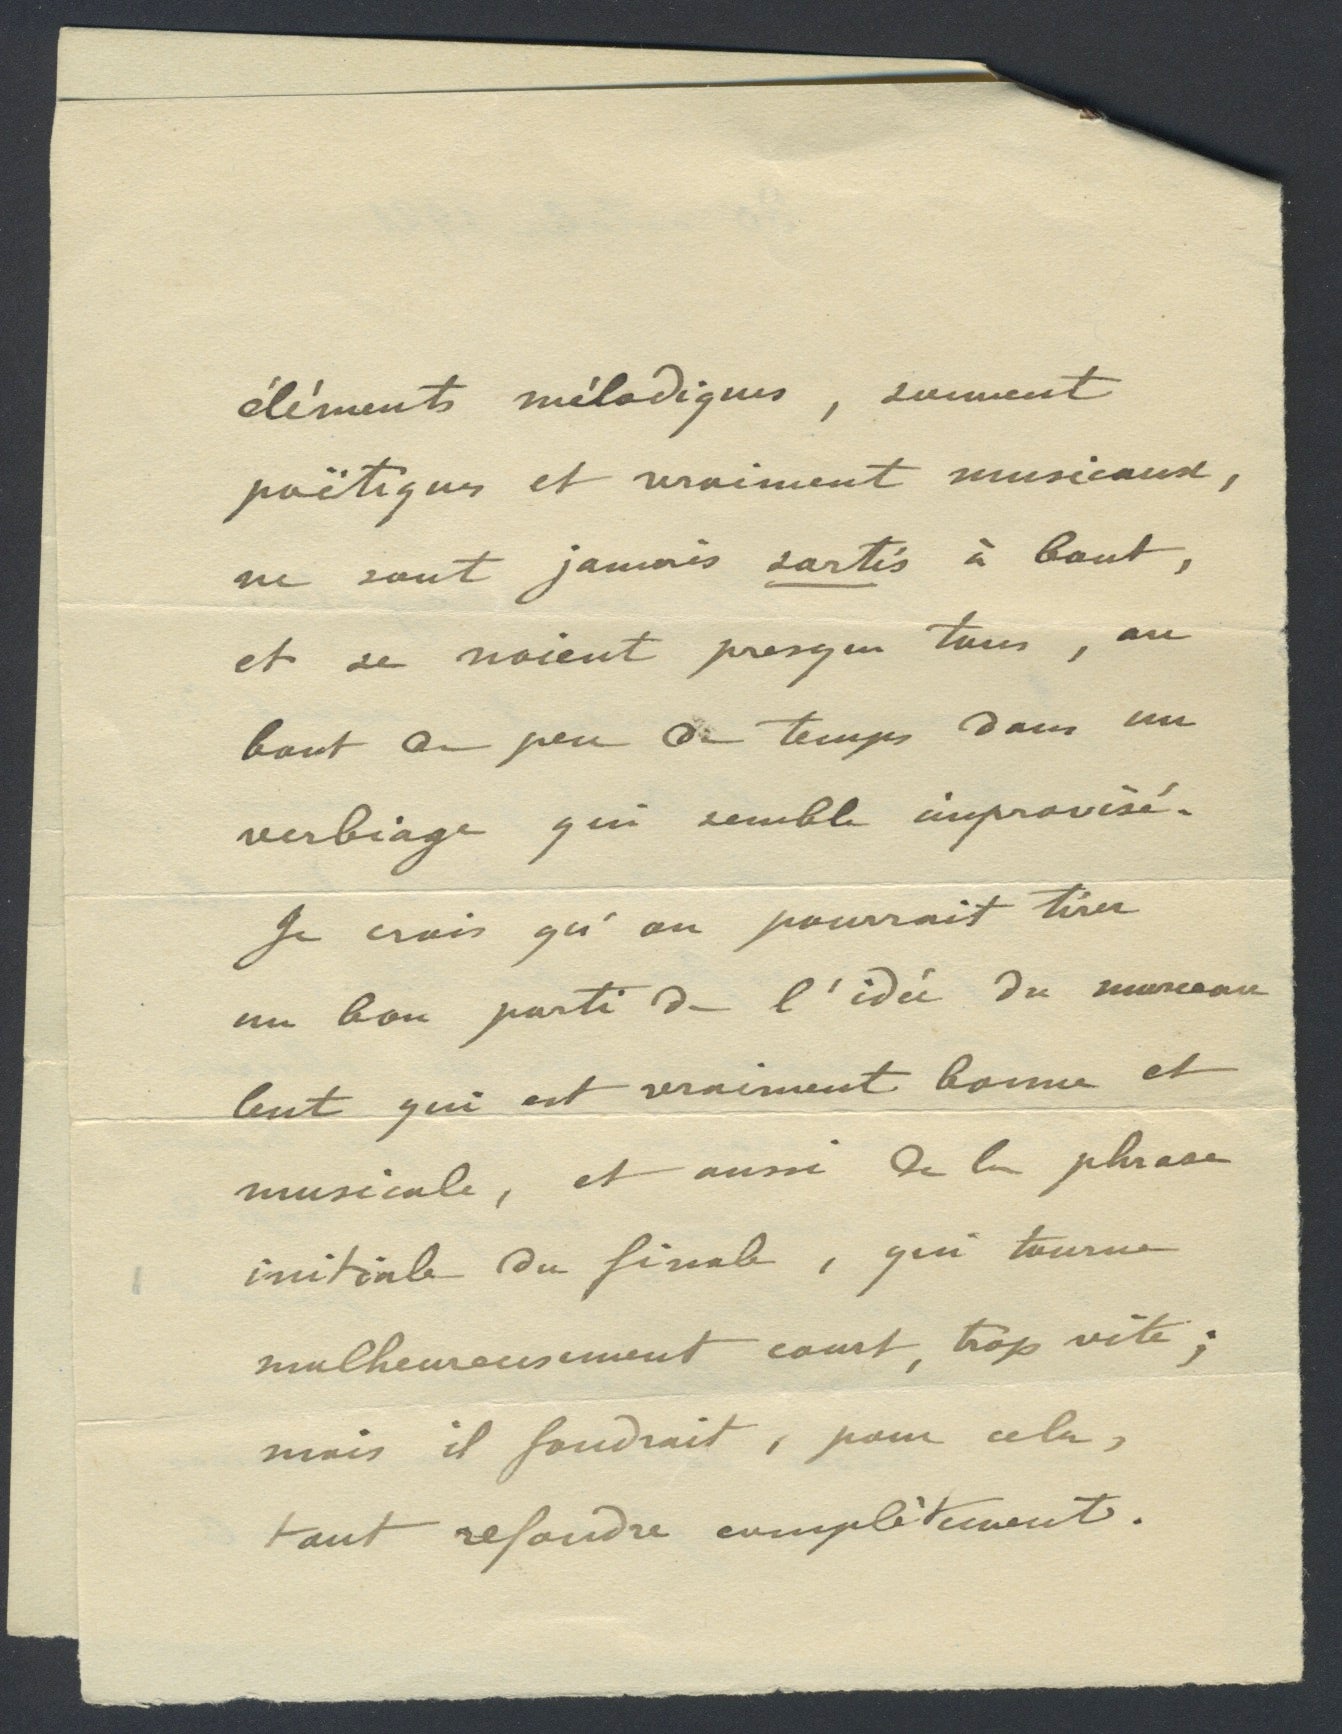 éléments mélodiques, souvent
poëtiques et vraiment musicaux,
ne sont jamais sortis à bout,
et se noient presque tous, au
bout de peu de temps dans un
verbiage qui semble improvisé.
Je crois qu'on pourrait tirer
un bon parti de l'idée du morceau
lent qui est vraiment bonne et
musicale, et aussi de la phrase
initiale du finale, qui tourne
malheureusement court, trop vite ;
mais il faudrait, pour cela,
tout refondre complètement.